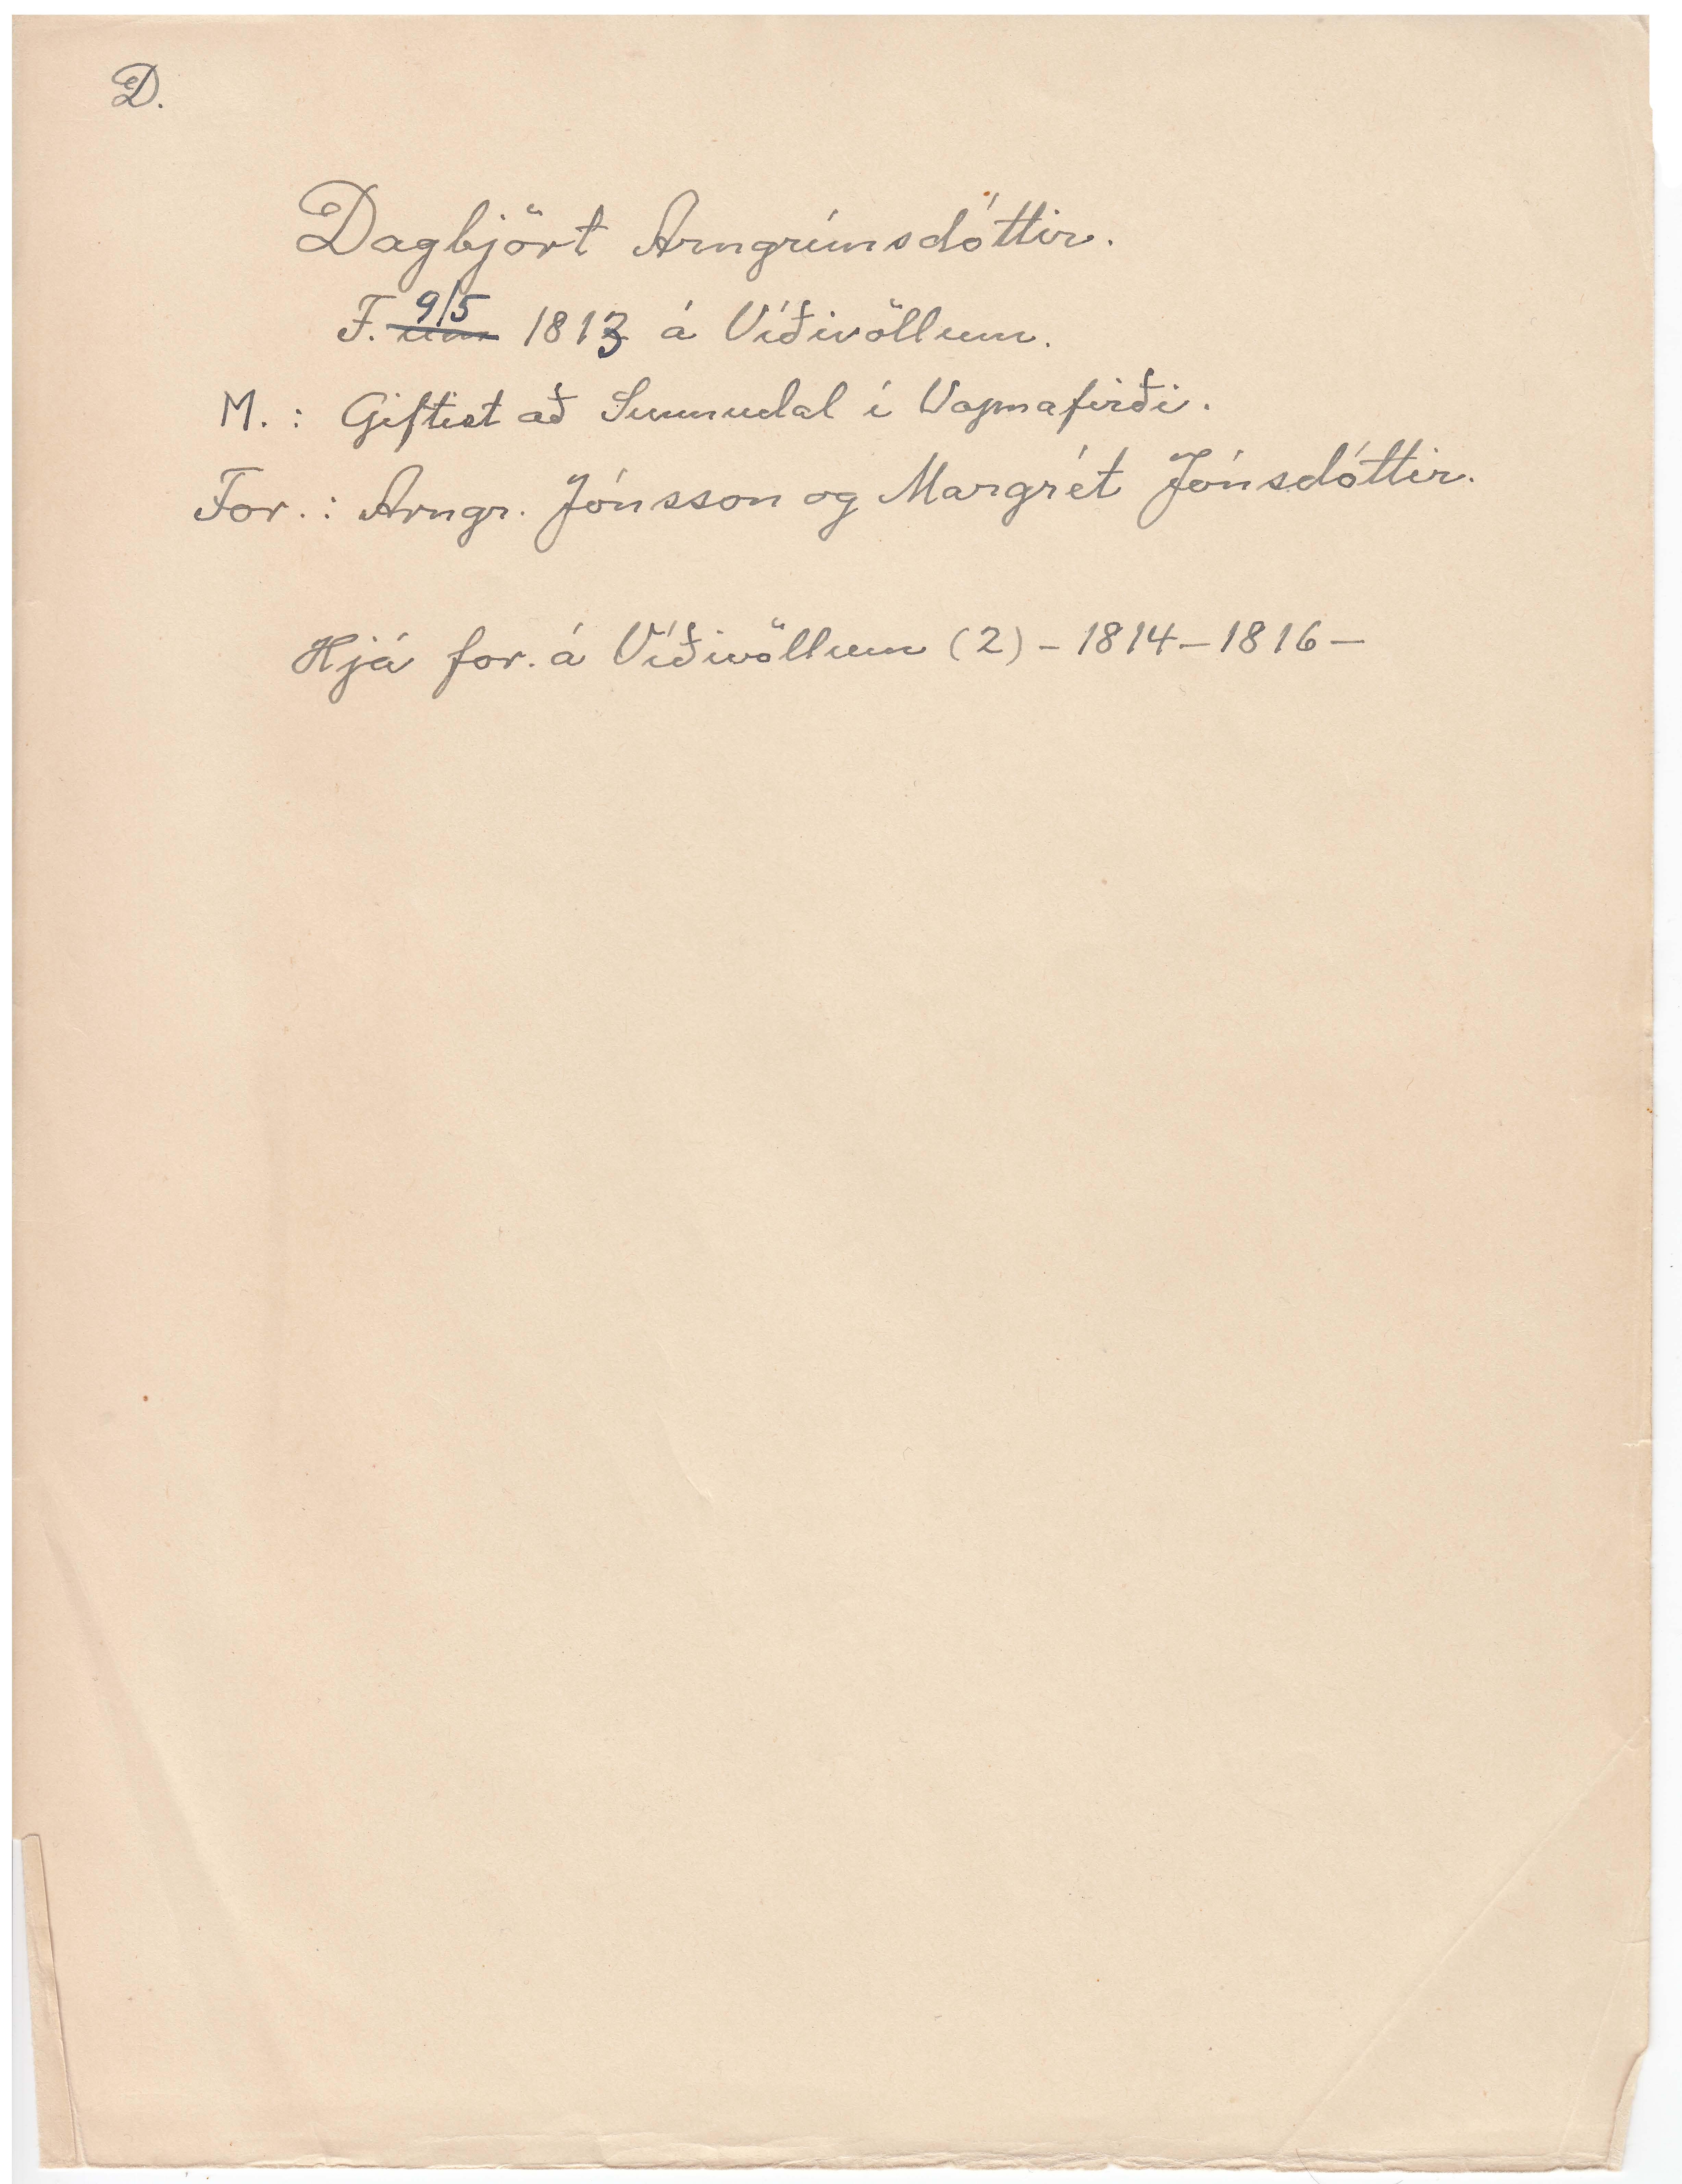 D.
Dagbjört Arngrímsdóttir.
F. 9/5 1813 á Víðivöllum.
M. : Giftist að Sunnudal í Vopnafirði.
For. : Arngr. Jónsson og Margrét Jónsdóttir.
Hjá for. á Víðivöllum (2) – 1814 – 1816 –